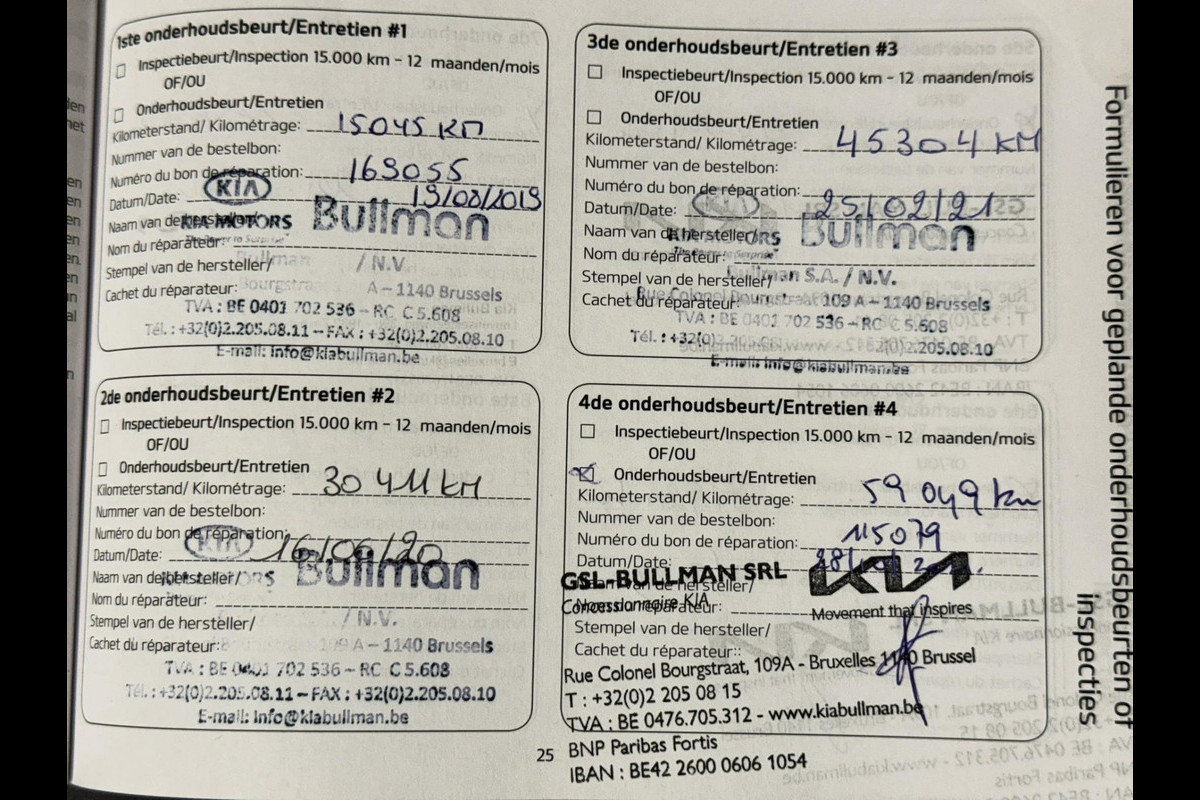 1ste onderhoudsbeurt/Entretien #1
Inspectiebeurt/Inspection 15.000 km - 12 maanden/mois
OF/OU
Onderhoudsbeurt/Entretien
Kilometerstand/ Kilométrage: 15045 KM
Nummer van de bestelbon:
Numéro du bon de réparation: 169055
KIA
Datum/Date: 19/08/2019
Naam van de hersteller/
KIA MOTORS Bullman
The Power to Surprise
Nom du réparateur:
Stempel van de hersteller/ Bullman / N.V.
Cachet du réparateur: Bourgstra A - 1140 Brussels
TVA : BE 0401 702 536 - RC C 5.608
Tél. : +32(0)2.205.08.11 - FAX : +32(0)2.205.08.10
E-mail: info@kiabullman.be
2de onderhoudsbeurt/Entretien #2
Inspectiebeurt/Inspection 15.000 km - 12 maanden/mois
OF/OU
Onderhoudsbeurt/Entretien
Kilometerstand/ Kilométrage: 30 411 KM
Nummer van de bestelbon:
Numéro du bon de réparation:
KIA
Datum/Date: 16/06/20
Naam van de hersteller/ Bullman
Nom du réparateur:
Stempel van de hersteller/ / N.V.
Cachet du réparateur: 109 A - 1140 Brussels
TVA : BE 0401 702 536 - RC C 5.608
Tél. : +32(0)2.205.08.11 - FAX : +32(0)2.205.08.10
E-mail: info@kiabullman.be
3de onderhoudsbeurt/Entretien #3
Inspectiebeurt/Inspection 15.000 km - 12 maanden/mois
OF/OU
Onderhoudsbeurt/Entretien
Kilometerstand/ Kilométrage: 45304 KM
Nummer van de bestelbon:
Numéro du bon de réparation:
KIA
Datum/Date: 25/02/21
Naam van de hersteller/
KIA MOTORS Bullman
The Power to Surprise
Nom du réparateur:
Stempel van de hersteller/ Bullman S.A. / N.V.
Cachet du réparateur: Rue Colonel Bourgstraat 109 A - 1140 Brussels
TVA : BE 0401 702 536 - RC C 5.608
Tél. : +32(0) 2(0)2.205.08.10
E-mail: info@kiabullman.be
4de onderhoudsbeurt/Entretien #4
Inspectiebeurt/Inspection 15.000 km - 12 maanden/mois
OF/OU
Onderhoudsbeurt/Entretien
Kilometerstand/ Kilométrage: 59 049 km
Nummer van de bestelbon:
Numéro du bon de réparation: 115079
Datum/Date:
GSL-BULLMAN SRL KIA
Naam van de hersteller/
Concessionnaire KIA
Nom du réparateur:
Movement that inspires
Stempel van de hersteller/
Cachet du réparateur::
Rue Colonel Bourgstraat, 109A - Bruxelles 1140 Brussel
T : +32(0)2 205 08 15
TVA : BE 0476.705.312 - www.kiabullman.be
BNP Paribas Fortis
IBAN : BE42 2600 0606 1054
25
Formulieren voor geplande onderhoudsbeurten of
inspecties